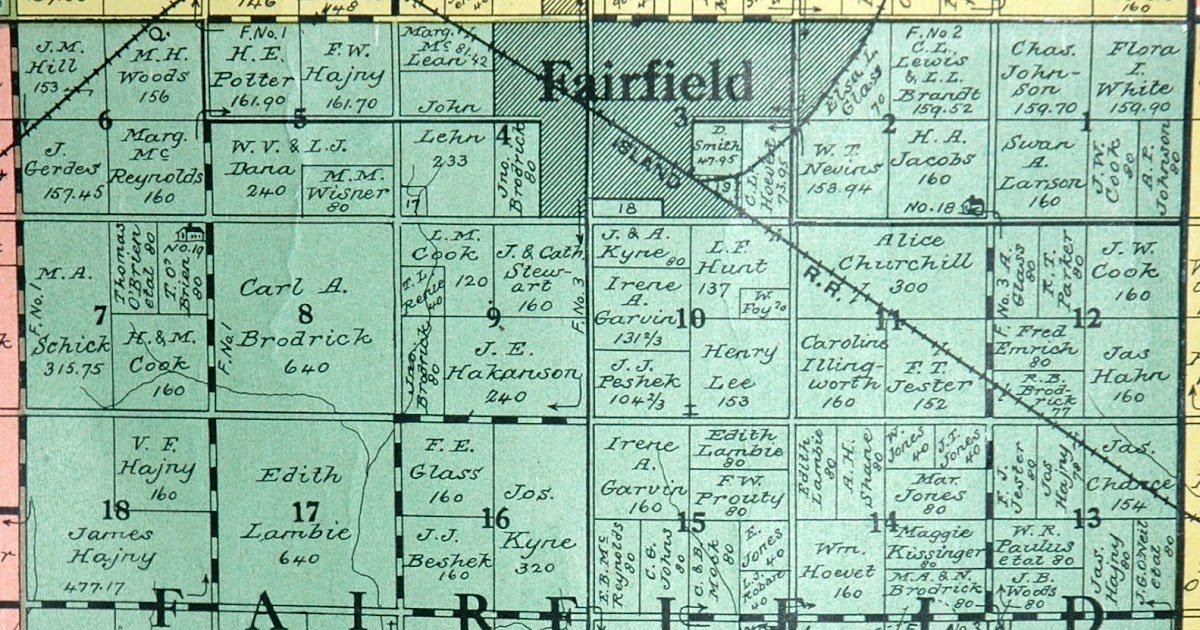 146
448
160
J.M.
Hill
153
Q.
M.H.
Woods
156
6
J.
Gerdes
157.45
Marg.
Mc
Reynolds
160
F.No.1
H.E.
Potter
161.90
F.W.
Hajny
161.70
5
W.V. & L.J.
Dana
240
M.M.
Wisner
80
Marg.
Mc 81.
Lean 42
John
Lehn
233
4
Jno.
Brodrick
80
17
Fairfield
3
ISLAND
D.
Smith
47.95
19
C.L.
Hoevet
73.95
18
Elsa L.
Glass
70
F. No.2
C.L.
Lewis
& L.L.
Brandt
159.52
2
W.T.
Nevins
158.94
H.A.
Jacobs
160
No.18
Chas.
John-
son
159.70
Flora
I.
White
159.90
1
Swan
A.
Larson
160
J.W.
Cook
80
A.P.
Johnson
80
M.A.
Schick
315.75
F.No.1
7
Thomas
O'Brien
etal 80
No.19
T.O'
Brien
80
H.&M.
Cook
160
Carl A.
8
Brodrick
640
F.No.1
L.M.
Cook
120
J.& Cath
Stew-
art
160
T.L.
40
9
Jno.
Brodrick
80
J.E.
Hakanson
240
F.No.3
J.& A.
Kyne 80
Irene
A.
Garvin
131⅔
10
J.J.
Peshek
104⅔
L.F.
Hunt
137
W.
Foy 20
Henry
Lee
153
R.R.
Alice
Churchill
300
11
Caroline
Illing-
worth
160
F.T.
Jester
152
No.3
F.
A.
Glass
80
R.T.
Parker
80
J.W.
Cook
160
12
Fred
Emrich
80
R.B.
Brod-
rick
77
Jas
Hahn
160
V.F.
Hajny
160
18
James
Hajny
477.17
Edith
17
Lambie
640
F.E.
Glass
160
Jos.
Kyne
320
16
J.J.
Beshek
160
Irene
A.
Garvin
160
Edith
Lambie
80
F.W.
Prouty
80
15
E.B.Mc
Reynolds
80
C.G.
Johns
80
C.&B.
Mook
80
E.
Jones
40
L.J.
Robare
40
Edith
Lambie
80
A.H.
Shane
80
W.
Jones
40
J.T.
Jones
40
Mar.
Jones
80
14
Wm.
Hoevet
160
Maggie
Kissinger
80
M.A.&N.
Brodrick
80
F.J.
Jester
80
Jas
Hajny
78
Jas.
Chance
154
13
W.R.
Paulus
etal 80
J.B.
Woods
80
Jas.
Hajny
80
J.G.O'Neil
etal
80
F A I R F I E L D